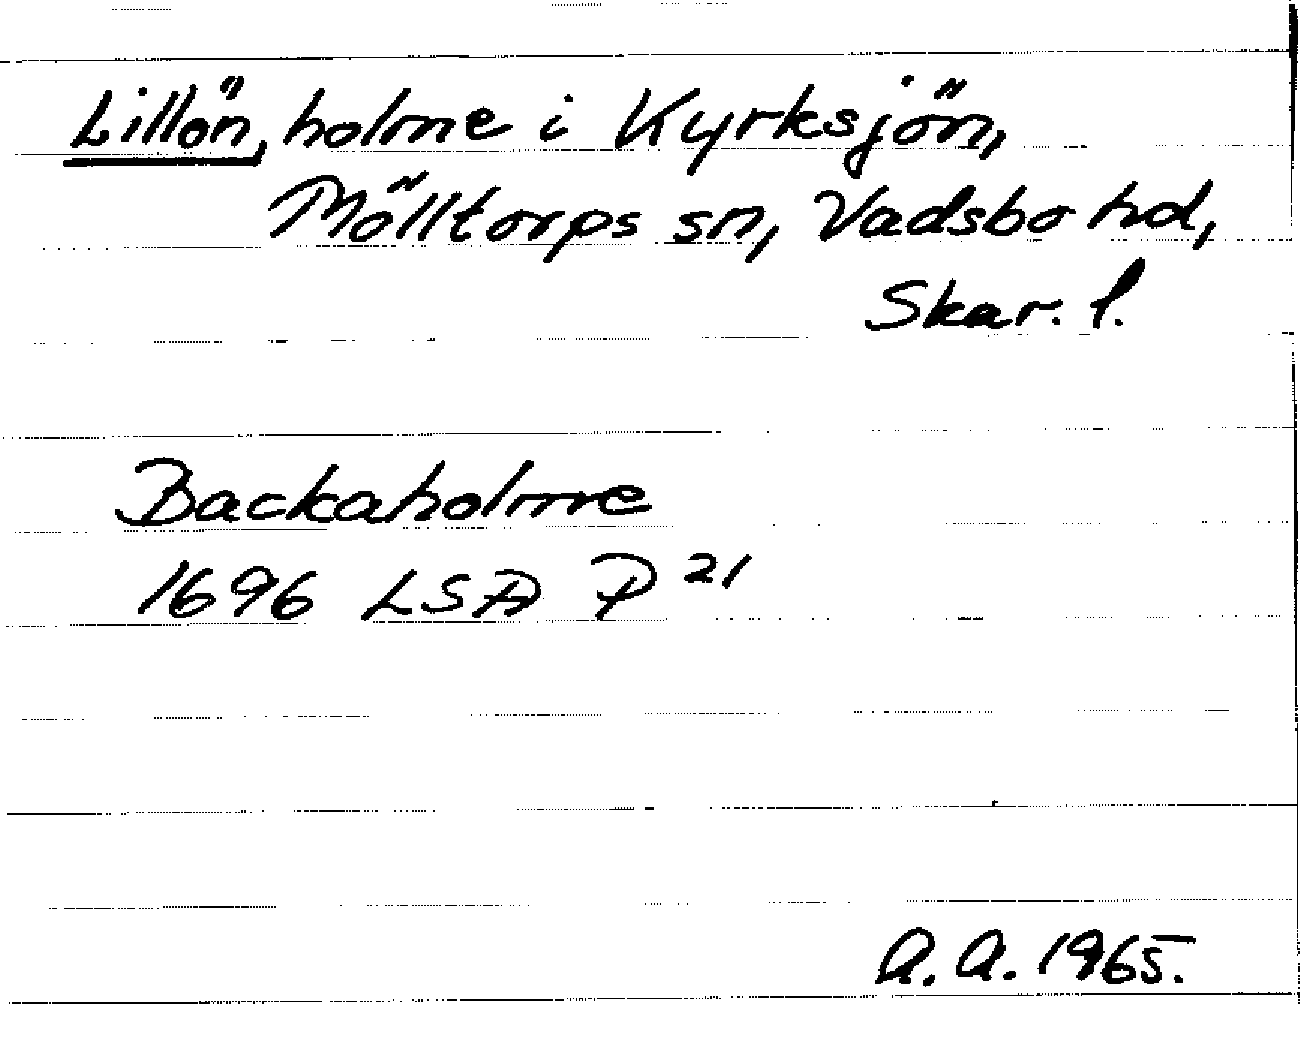 Lillön, holme i Kyrksjön,
Mölltorps sn, Vadsbo hd,
Skar. l.
Backaholme
1696 LSA P 21
A. A. 1965.